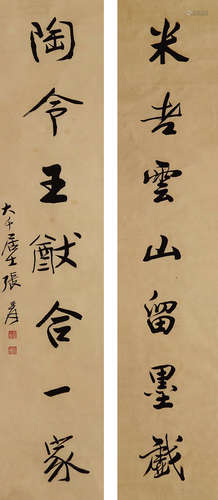 米老雲山留墨戲
陶令王猷合一家
大千居士張爰